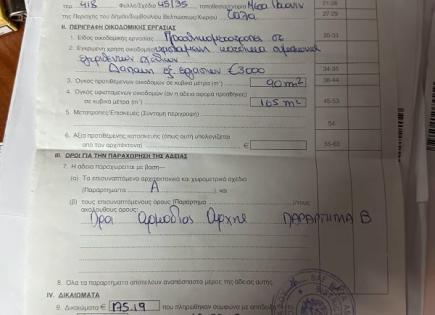 τεμ 418 Φύλλο/Σχέδιο 45/35 τοποθεσία
της Περιοχής του Δημοτικού Συμβουλίου/Βελτιώσεως/Χωριού Τάλα
27-29
II. ΠΕΡΙΓΡΑΦΗ ΟΙΚΟΔΟΜΙΚΗΣ ΕΡΓΑΣΙΑΣ
1. Είδος οικοδομικής εργασίας Προσθηκομετατροπές σε
30-33
2. Εγκριμένη χρήση οικοδομής υφιστάμενη κατοικία
€3000
34-35
3. Όγκος προτεινόμενων οικοδομών σε κυβικά μέτρα (m³) 90 m³
36-44
4. Όγκος υφισταμένων οικοδομών (αν η άδεια αφορά προσθήκες)
σε κυβικά μέτρα (m³) 165 m³
45-53
5. Μετατροπές/Επισκευές (Σύντομη περιγραφή)
54
6. Αξία προτεινόμενης κατασκευής (όπως αυτή υπολογίζεται
από τον αρχιτέκτονα) €
55-63
III. ΟΡΟΙ ΓΙΑ ΤΗΝ ΠΑΡΑΧΩΡΗΣΗ ΤΗΣ ΑΔΕΙΑΣ
7. Η άδεια παραχωρείται με βάση—
(α) Τα επισυναπτόμενα αρχιτεκτονικά και χωρομετρικά σχέδια
(Παράρτημα Α ), και
(β) τους επισυναπτόμενους όρους (Παράρτημα )/τους
ακόλουθους όρους:
Όροι Αρμόδιας Αρχής ΠΑΡΑΡΤΗΜΑ Β
8. Όλα τα παραρτήματα αποτελούν αναπόσπαστο μέρος της άδειας αυτής.
IV. ΔΙΚΑΙΩΜΑΤΑ
9. Δικαιώματα € 175.19 που πληρώθηκαν σύμφωνα με